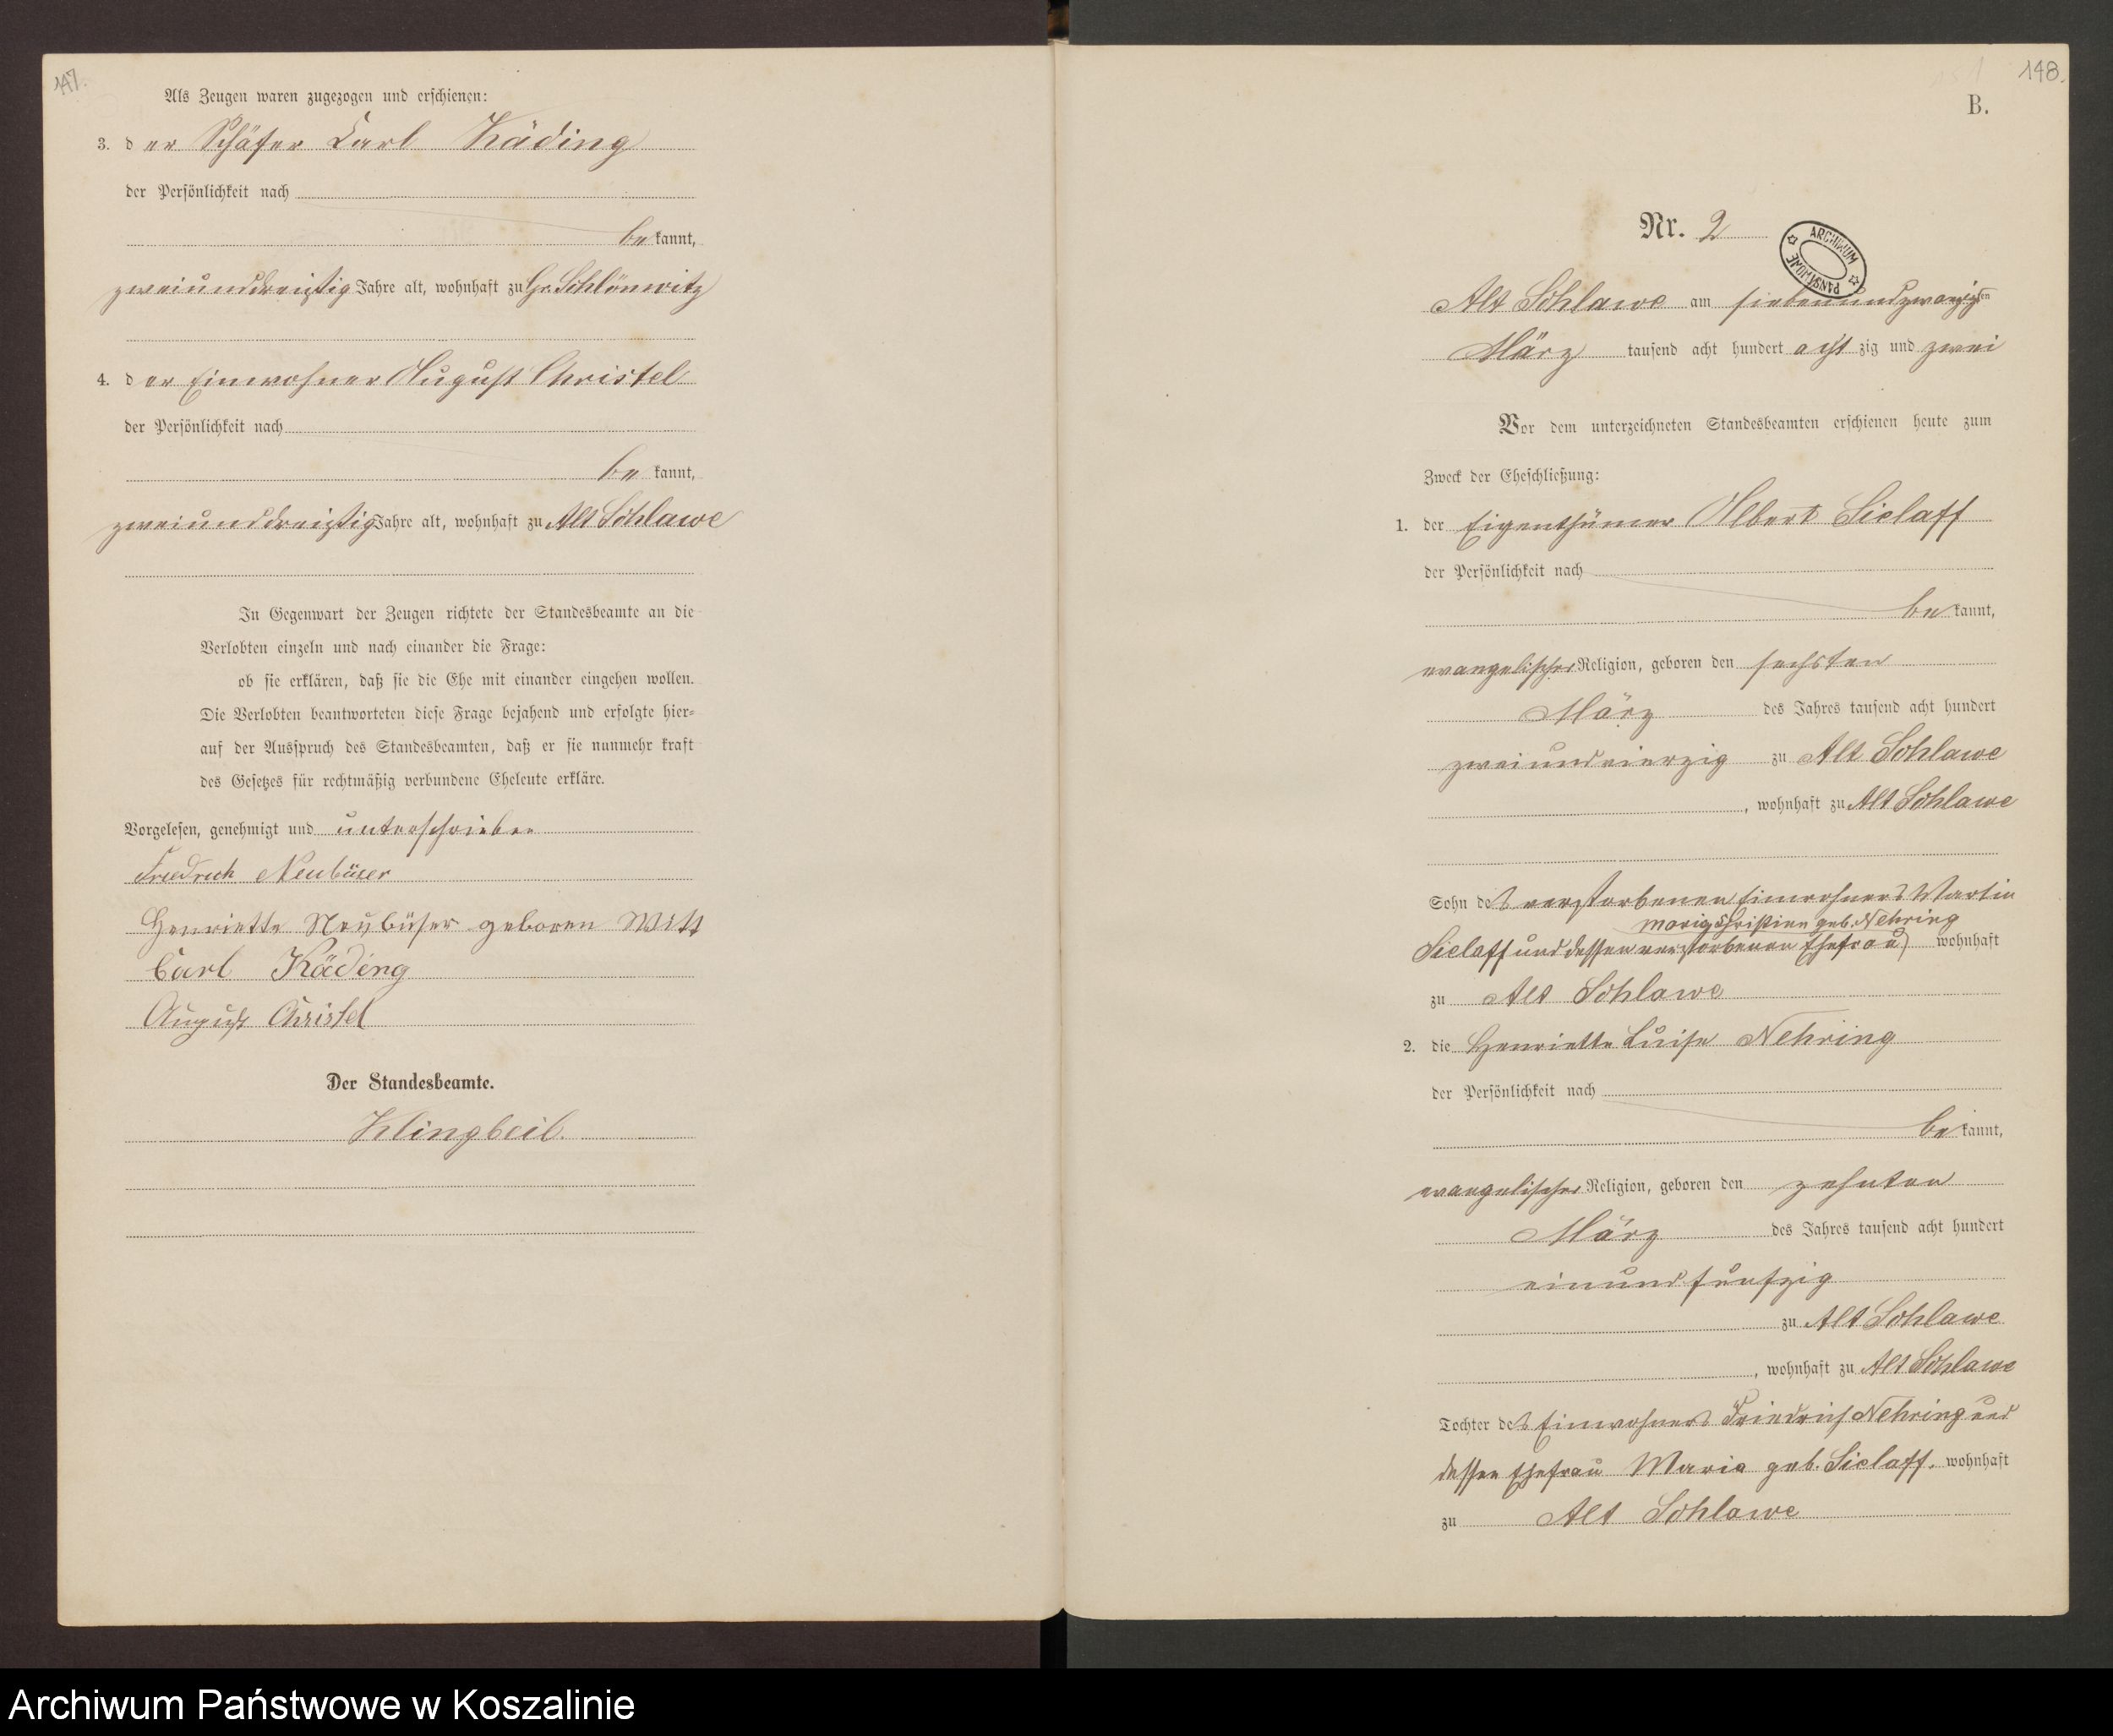 147.
Als Zeugen waren zugezogen und erschienen:
3. der Schäfer Carl Käding
der Persönlichkeit nach
bekannt,
zweiunddreißig Jahre alt, wohnhaft zu Gr. Schlönwitz
4. der Einwohner August Christel
der Persönlichkeit nach
bekannt,
zweiunddreißig Jahre alt, wohnhaft zu Alt Schlawe
In Gegenwart der Zeugen richtete der Standesbeamte an die
Verlobten einzeln und nach einander die Frage:
ob sie erklären, daß sie die Ehe mit einander eingehen wollen.
Die Verlobten beantworteten diese Frage bejahend und erfolgte hier-
auf der Ausspruch des Standesbeamten, daß er sie nunmehr kraft
des Gesetzes für rechtmäßig verbundene Eheleute erkläre.
Vorgelesen, genehmigt und unterschrieben
Friedrich Neubüser
Henriette Neubüser geboren Witt
Carl Käding
August Christel
Der Standesbeamte.
Klingbeil.
148.
B.
Nr. 2
ARCHIWUM PAŃSTWOWE
Alt Schlawe am siebenundzwanzigsten
März tausend acht hundert achtzig und zwei
Vor dem unterzeichneten Standesbeamten erschienen heute zum
Zweck der Eheschließung:
1. der Eigenthümer Albert Sielaff
der Persönlichkeit nach
bekannt,
evangelischer Religion, geboren den sechsten
März des Jahres tausend acht hundert
zweiundvierzig zu Alt Schlawe
, wohnhaft zu Alt Schlawe
Sohn des verstorbenen Einwohners Martin
Marie Christine geb. Nehring
Sielaff und dessen verstorbenen Ehefrau wohnhaft
zu Alt Schlawe
2. die Henriette Luise Nehring
der Persönlichkeit nach
bekannt,
evangelischer Religion, geboren den zehnten
März des Jahres tausend acht hundert
einundfünfzig
zu Alt Schlawe
, wohnhaft zu Alt Schlawe
Tochter des Einwohners Friedrich Nehring und
dessen Ehefrau Maria geb. Sielaff. wohnhaft
zu Alt Schlawe
Archiwum Państwowe w Koszalinie